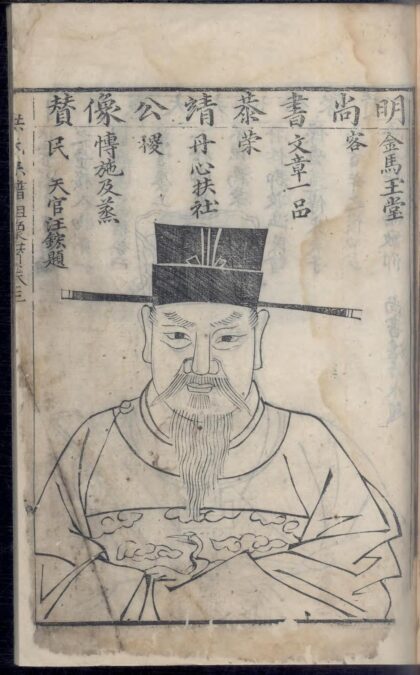 明尚書恭靖公像贊
金馬玉堂
客
文章一品
榮
丹心扶社
稷
博施及蒸
民
天官汪鋐題